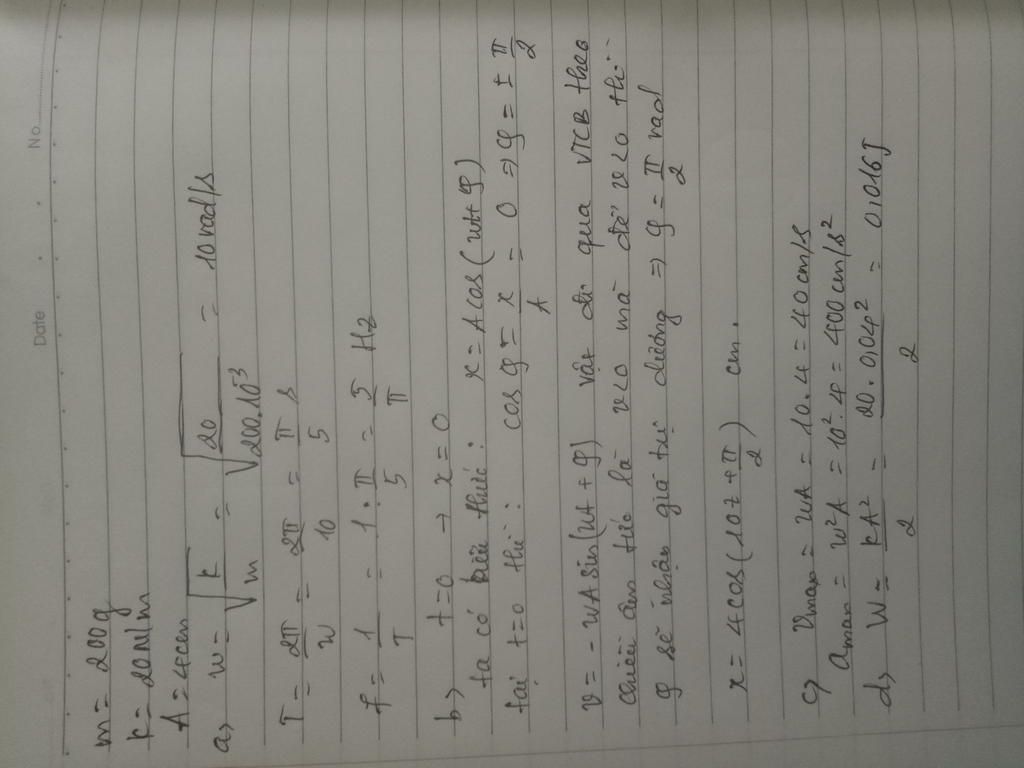 Date No.
m = 200g
k = 20N/m
A = 4cm
a> w = √k/√m = √20/√200.10^-3 = 10 rad/s
T = 2π/w = 2π/10 = π/5 s
f = 1/T = 1. π/5 = 5/π Hz
b> t=0 → x=0
ta có biểu thức: x = Acos(wt+φ)
tại t=0 thì: cos φ = x/A = 0 => φ = ± π/2
v = - wA sin(wt + φ) vật đi qua VTCB theo
chiều âm tức là v<0 mà để v<0 thì
φ sẽ nhận giá trị dương => φ = π/2 rad
x = 4cos(10t + π/2) cm.
c> Vmax = wA = 10.4 = 40cm/s
amax = w²A = 10².4 = 400cm/s²
d> W = kA²/2 = 20.0,04²/2 = 0,016J